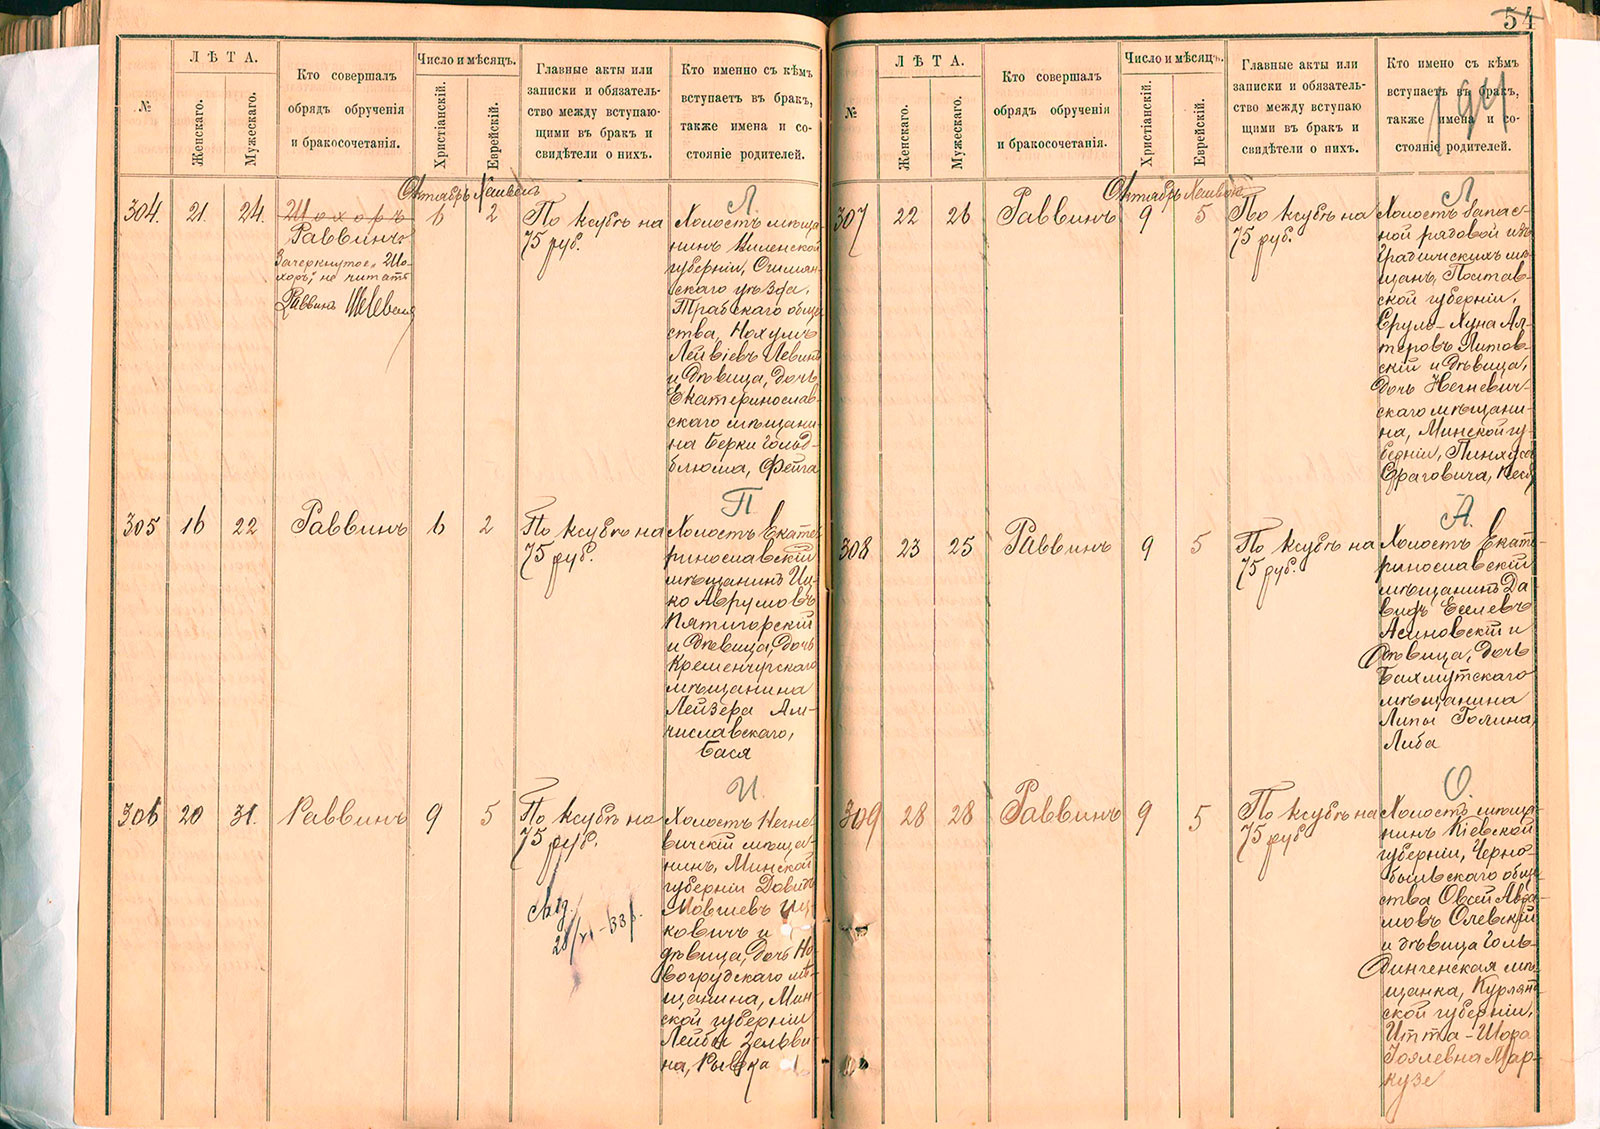 54
194
№
ЛѢТА.
Женскаго.
Мужескаго.
Кто совершалъ
обрядъ обрученія
и бракосочетанія.
Число и мѣсяцъ.
Христіанскій.
Еврейскій.
Главные акты или
записки и обязатель-
ство между вступаю-
щими въ бракъ и
свидѣтели о нихъ.
Кто именно съ кѣмъ
вступаетъ въ бракъ,
также имена и со-
стояніе родителей.
Октябрь
304. 21. 24.
Шохоръ
Раввинъ
Зачеркнутое „Шо-
хоръ" не читать
Раввинъ
6 2
По ксубѣ на
75 руб.
Л.
Холостъ мѣща-
нинъ Виленской
губерніи, Ошмян-
скаго уѣзда,
Трабскаго обще-
ства, Нохумъ
Лейвіевъ Левинъ
и дѣвица, дочь
Екатеринослав-
скаго мѣщани-
на Берки Гольд-
блюма, Фейга
305 16 22 Раввинъ 6 2
По ксубѣ на
75 руб.
П.
Холостъ Екате-
ринославскій
мѣщанинъ Иц-
ко Аврумовъ
Пятигорскій
и дѣвица, дочь
Кременчугскаго
мѣщанина
Лейзера Ам-
числавскаго,
Бася
306 20 31. Раввинъ 9 5
По ксубѣ на
75 руб.
И.
Холостъ Негне-
вичскій мѣща-
нинъ, Минской
губерніи Довидъ
Мовшевъ Иц-
ковичъ и
дѣвица, дочь Но-
вогрудскаго мѣ-
щанина, Мин-
ской губерніи
Лейбы Зельви-
на, Рывка
№
ЛѢТА.
Женскаго.
Мужескаго.
Кто совершалъ
обрядъ обрученія
и бракосочетанія.
Число и мѣсяцъ.
Христіанскій.
Еврейскій.
Главные акты или
записки и обязатель-
ство между вступаю
щими въ бракъ и
свидѣтели о нихъ.
Кто имено съ кѣмъ
вступаетъ въ бракъ,
также имена и со-
стояніе родителей.
Октябрь
307 22 26 Раввинъ 9 5
По ксубѣ на
75 руб.
Л.
Холостъ запас-
ной рядовой изъ
Градижскихъ мѣ-
щанъ, Полтав-
ской губерніи,
Сруль-Хуна Ал-
теровъ Литов-
скій и дѣвица,
дочь Негневич-
скаго мѣщани-
на, Минской гу-
берніи, Пинхуса
308 23 25 Раввинъ 9 5
По ксубѣ на
75 руб.
А.
Холостъ Екате-
ринославскій
мѣщанинъ Да
видъ Еселевъ
Асиновскій и
дѣвица, дочь
Бахмутскаго
мѣщанина
Липы Голина,
Либа
309 28 28 Раввинъ 9 5
По ксубѣ на
75 руб
О.
Холостъ мѣща-
нинъ Кіевской
губерніи, Черно-
быльскаго обще-
ства Овсей Авра-
мовъ Олевскій
и дѣвица Голь-
дингенская мѣ-
щанка, Курлянд-
ской губерніи,
Итта-Шора
Маркузе